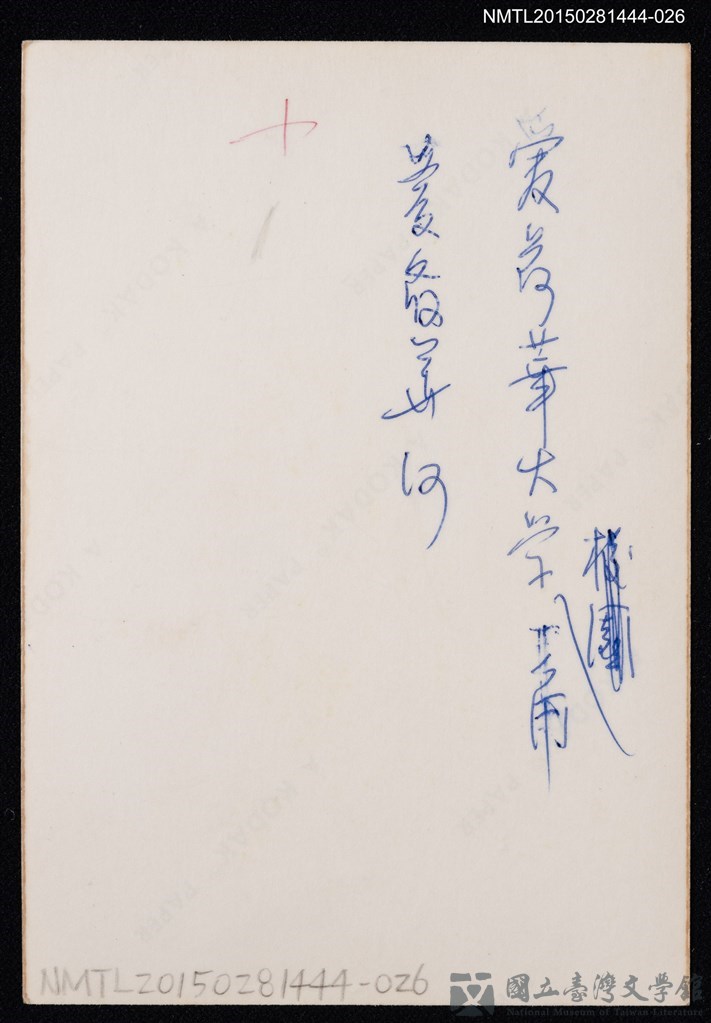 NMTL20150281444-026
愛荷華大学
校園
愛荷華河
A KODAK PAPER
NMTL20150281444-026
國立臺灣文學館
National Museum of Taiwan Literature